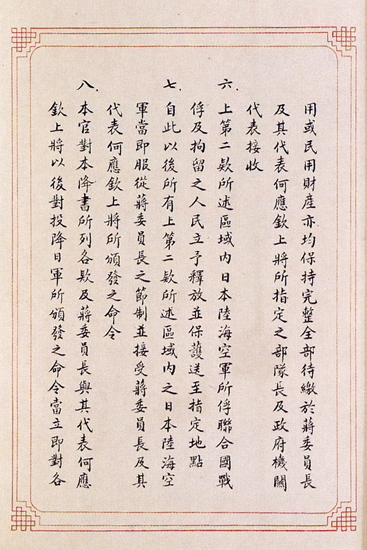 用或民用財産亦均保持完整全部待繳於蔣委員長
及其代表何應欽上將所指定之部隊長及政府機關
代表接收
六. 上第二欵所述區域內日本陸海空軍所俘聯合國戰
俘及拘留之人民立予釋放並保護送至指定地點
七. 自此以後所有上第二欵所述區域內之日本陸海空
軍當即服從蔣委員長之節制並接受蔣委員長及其
代表何應欽上將所頒發之命令
八. 本官對本降書所列各欵及蔣委員長與其代表何應
欽上將以後對投降日軍所頒發之命令當立即對各